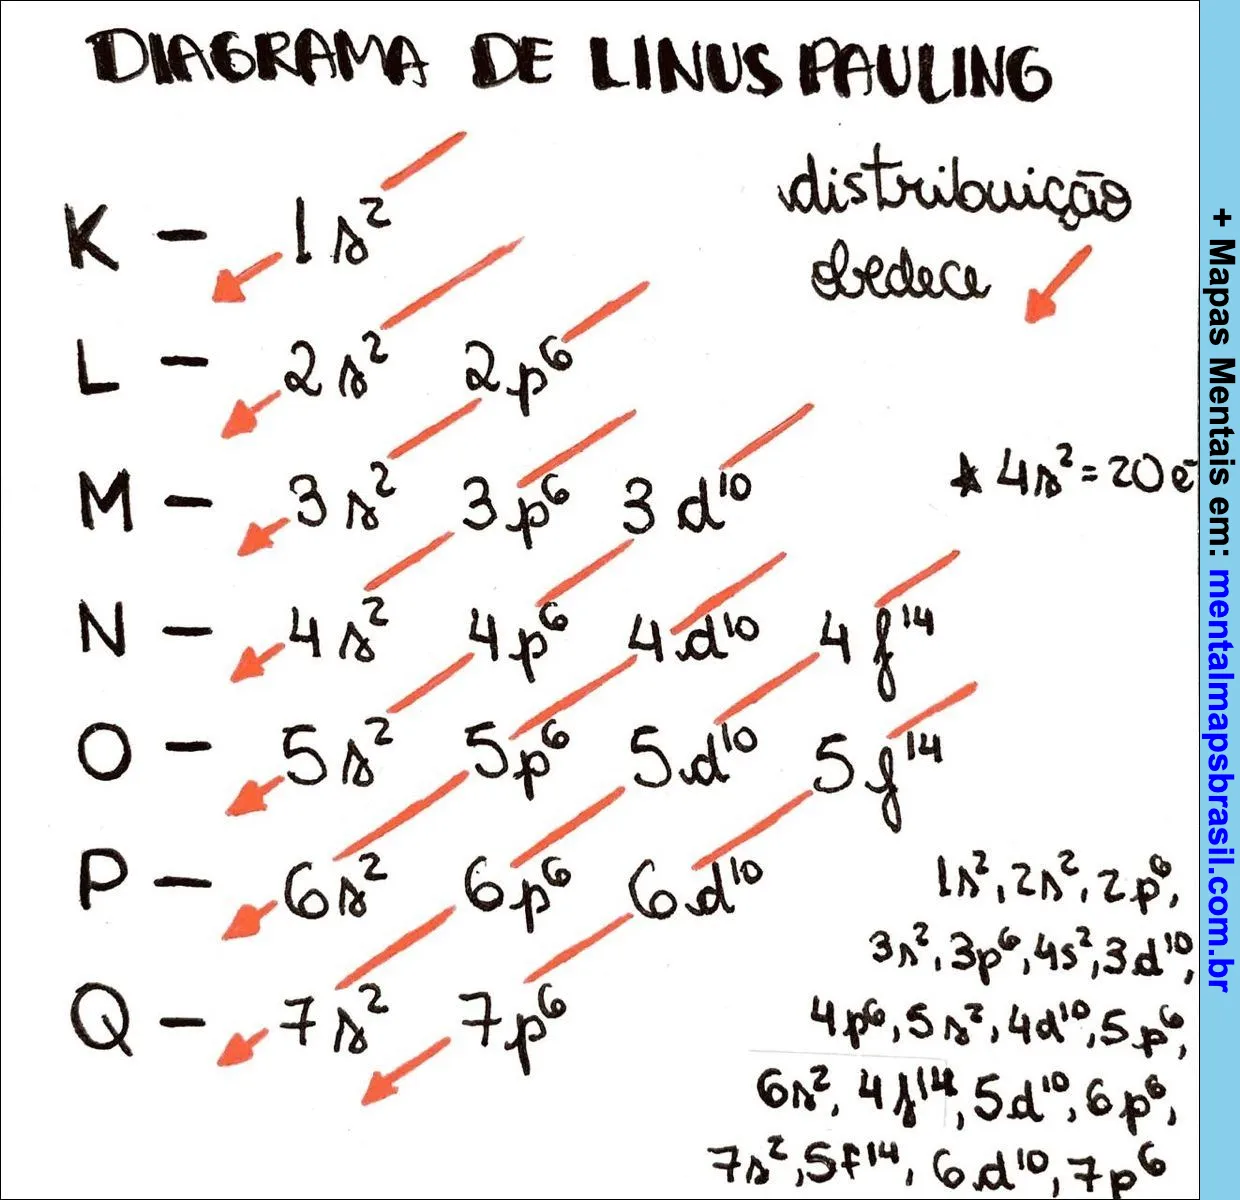 DIAGRAMA DE LINUS PAULING
distribuição
obedece
K - 1s²
L - 2s² 2p⁶
M - 3s² 3p⁶ 3d¹⁰
★ 4s² = 20e⁻
N - 4s² 4p⁶ 4d¹⁰ 4f¹⁴
O - 5s² 5p⁶ 5d¹⁰ 5f¹⁴
P - 6s² 6p⁶ 6d¹⁰
Q - 7s² 7p⁶
1s², 2s², 2p⁶,
3s², 3p⁶, 4s², 3d¹⁰,
4p⁶, 5s², 4d¹⁰, 5p⁶,
6s², 4f¹⁴, 5d¹⁰, 6p⁶,
7s², 5f¹⁴, 6d¹⁰, 7p⁶
+ Mapas Mentais em: mentalmapsbrasil.com.br